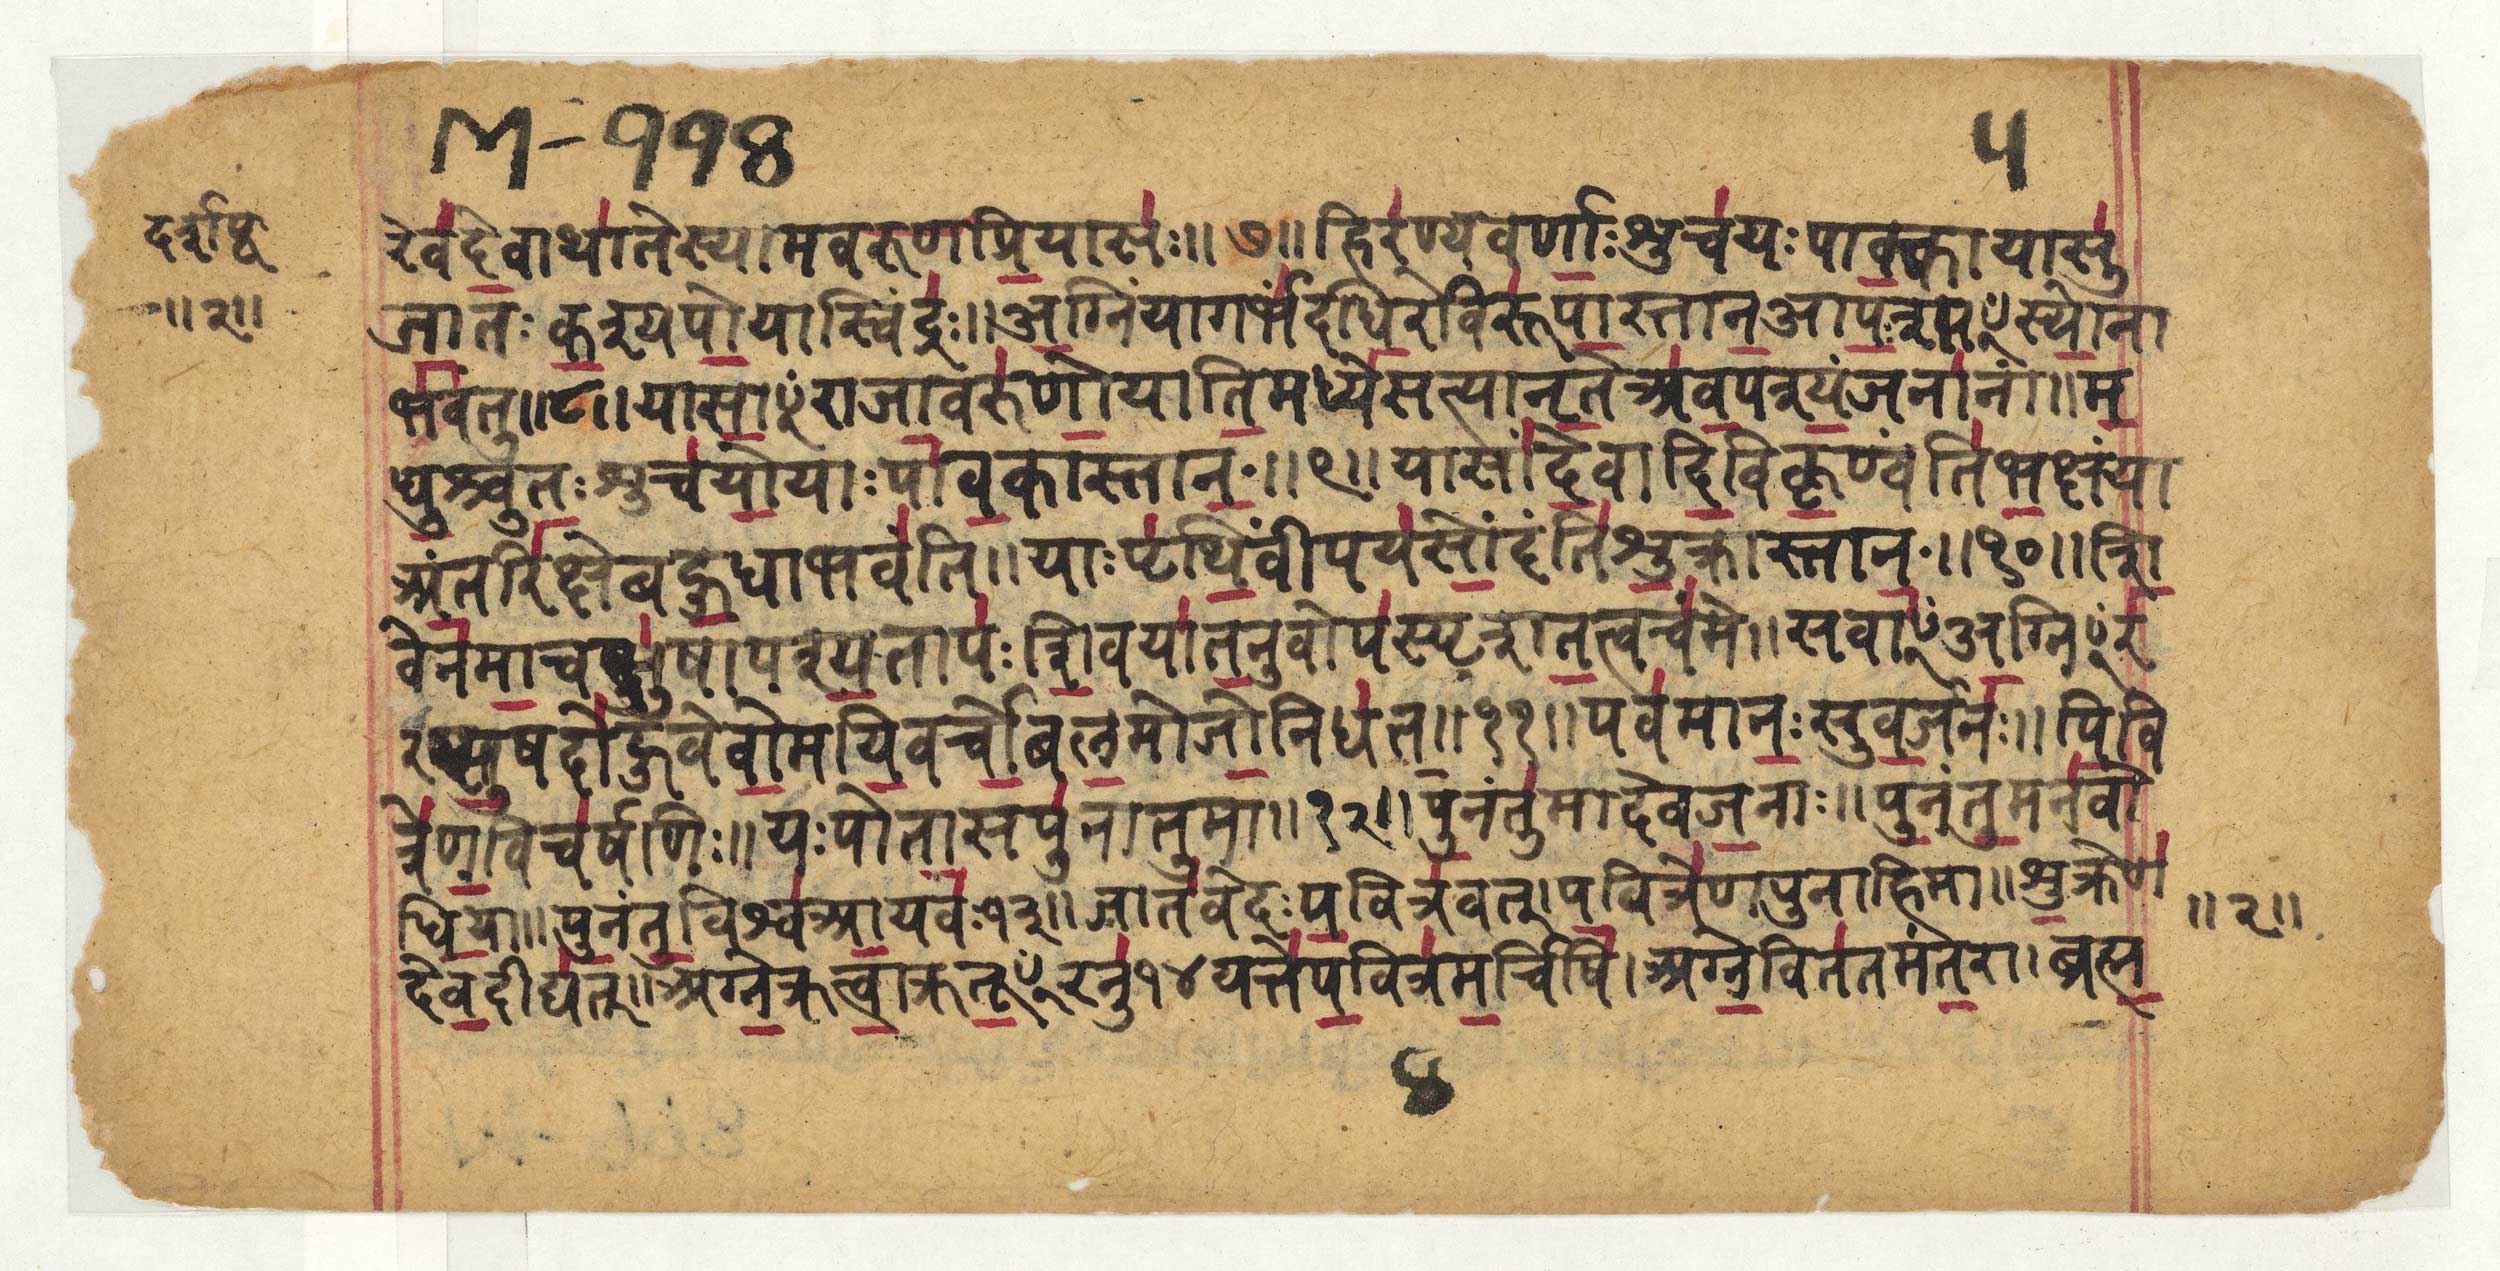 M-११४
५
दर्शपू
॥२॥
रेवदेवाथातेस्यामवरुणप्रियासः॥७॥हिरण्यवर्णाःशुचयःपावकायासु
जातःकश्यपोयास्विंद्रः॥अग्निंयागर्भंदधिरेविरूपास्तानआपःशꣳस्योना
भवंतु॥८॥यासाꣳराजावरुणोयातिमध्येसत्यानृतेअवपश्यंजनानां॥म
धुश्चुतःशुचयोयाःपावकास्तान॰॥९॥यासांदेवादिविकृण्वंतिभक्षंया
अंतरिक्षेबहुधाभवंति॥याःपृथिवींपयसोंदंतिशुक्रास्तान॰॥१०॥शि
वेनमाचक्षुषापश्यतापःशिवयातनुवोपस्पृशतत्वचंमे॥सर्वाꣳअग्निꣳर
रप्सुषदोहुवेवोमयिवर्चोबलमोजोनिधत्त॥११॥पवमानःसुवर्जनः॥पवि
त्रेणविचर्षणिः॥यःपोतासपुनातुमा॥१२॥पुनंतुमादेवजनाः॥पुनंतुमनवो
धिया॥पुनंतुविश्वआयवः१३॥जातवेदःपवित्रवत्।पवित्रेणपुनाहिमा॥शुक्रेण
देवदीद्यत्॥अग्नेक्रत्वाक्रतूꣳरनु१४यत्तेपवित्रमर्चिषि।अग्नेविततमंतरा।ब्रह्म
॥२॥
४